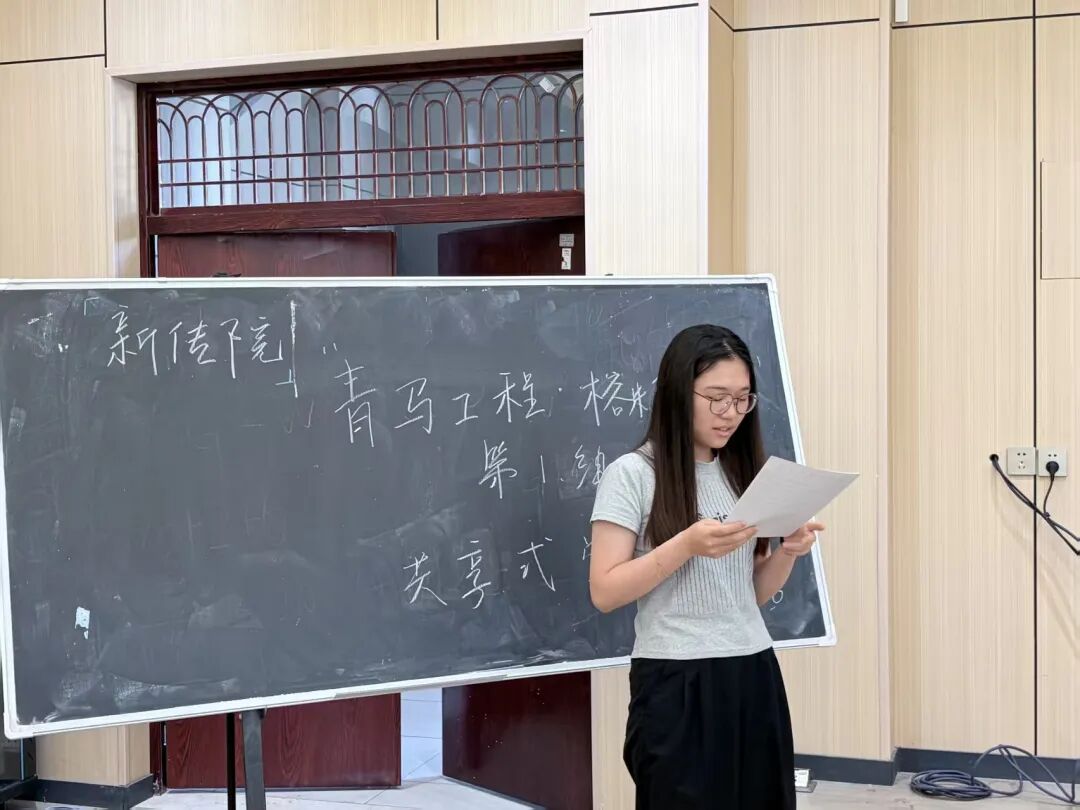 新传院
"青马工程·榕
第1组
共享式